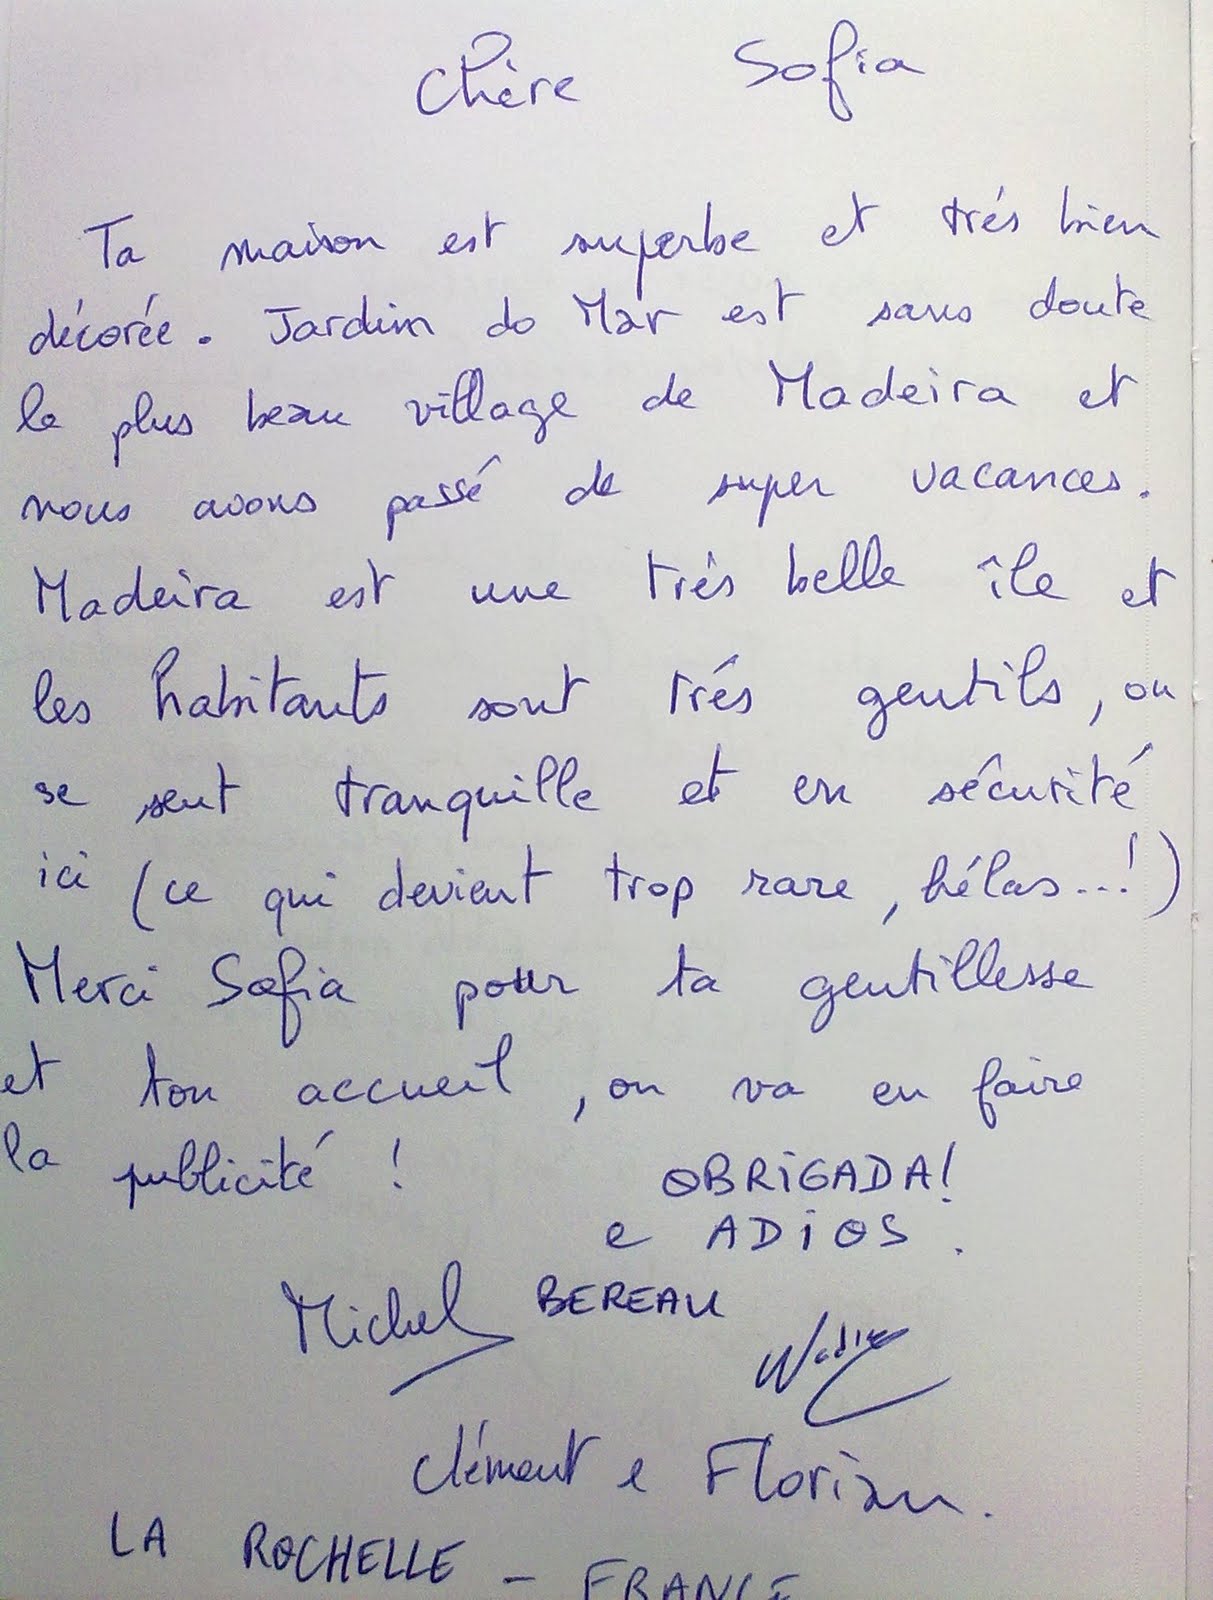 Chère Sofia
Ta maison est superbe et trés bien
décorée. Jardim do Mar est sans doute
le plus beau village de Madeira et
nous avons passé de super vacances.
Madeira est une trés belle île et
les habitants sont trés gentils, on
se sent tranquille et en sécurité
ici (ce qui devient trop rare, hélas...!)
Merci Sofia pour ta gentillesse
et ton accueil, on va en faire
la publicité !
OBRIGADA!
e ADIOS.
Michel BEREAU
Nadine
Clément e Florian.
LA ROCHELLE - FRANCE